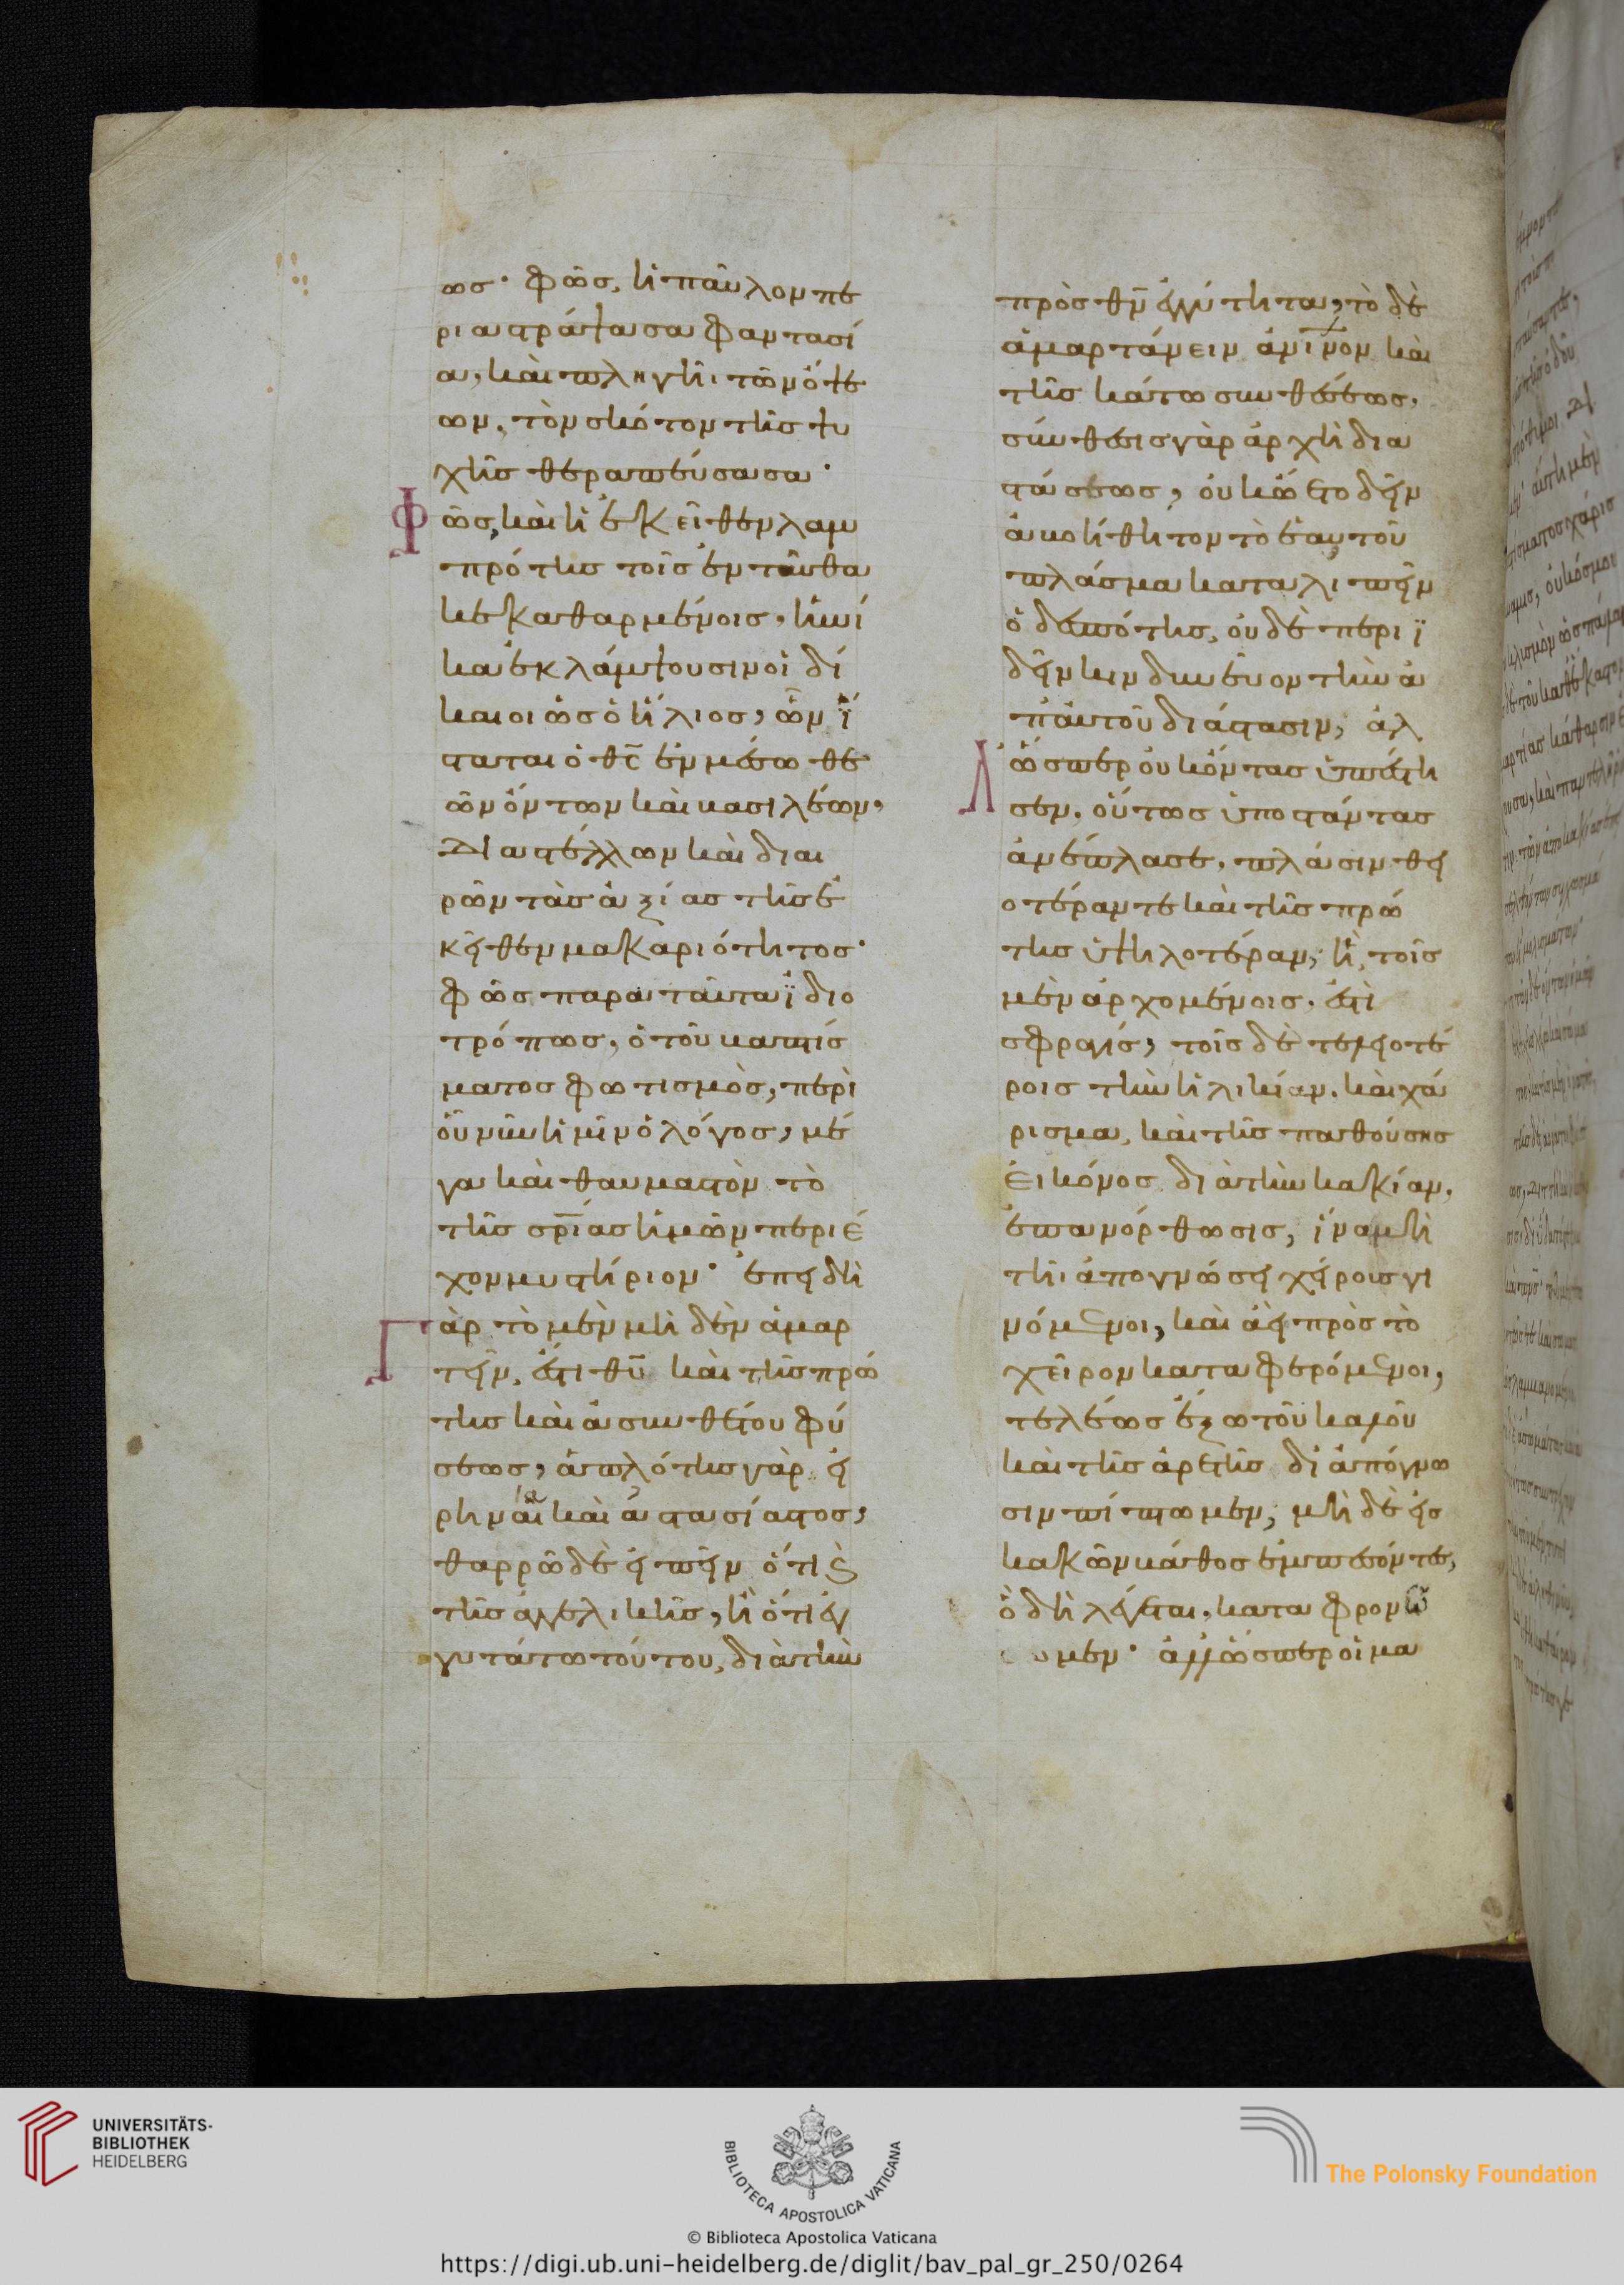 ωσ· φῶσ, ἡ παῦλον πε
ριαστράψασα φαντασί
α, καὶ πληγῆι τῶν ὄψε
ων, τὸν σκότον τῆσ ψυ
χῆσ θεραπεύσασα·
Φῶσ, καὶ ἡ ἐκεῖθεν λαμ
πρότησ τοῖσ ἐνταῦθα
κεκαθαρμένοισ, ἡνί
κα ἐκλάμψουσιν οἱ δί
καιοι ὡσ ὁ ἥλιοσ, ὧν ἵ
σταται ὁ θς ἐν μέσω θε
ῶν ὄντων καὶ βασιλέων,
διαστέλλων καὶ διαι
ρῶν τὰσ ἀξίασ τῆσ ἐ
κεῖθεν μακαριότητοσ·
φῶσ παρα ταῦτα ἰδιο
τρόπωσ, ὁ τοῦ βαπτίσ
ματοσ φωτισμὸσ, περὶ
οὗ νῦν ἡμῖν ὁ λόγοσ, μέ
γα καὶ θαυμαστὸν τὸ
τῆσ σρίασ ἡμῶν περιέ
χον μυστήριον· ἐπειδὴ
Γὰρ τὸ μὲν μὴ δὲν ἁμαρ
τεῖν, ἐστι θυ καὶ τῆσ πρώ
τησ καὶ ἀσυνθέτου φύ
σεωσ, ἁπλότησ γὰρ εἰ
ρηναία καὶ ἀστασίαστοσ,
θαρρῶ δὲ εἰπεῖν ὅτι καὶ
τῆσ ἀγγελικῆσ, ἢ ὅτι ἐγ
γυτάτω τούτου, διὰ τὴν
πρὸσ θν ἐγγύτητα, τὸ δὲ
ἁμαρτάνειν ἀνινον καὶ
τῆσ κάτω συνθέσεωσ,
σύνθεσισ γὰρ ἀρχὴ δια
στάσεωσ, οὐκ ὤετο δεῖν
ἀβοήθητον τὸ ἑαυτοῦ
πλάσμα καταλιπεῖν
ὁ δεσπότησ, οὐδὲ περιϊ
δεῖν κινδυνεῦον τὴν ἀ
π' αὐτοῦ διάστασιν, ἀλ
Λ' ὥσπερ οὐκ ὄντασ ὑπέστη
σεν, οὕτωσ ὑποστάντασ
ἀνέπλασε, πλάσιν θει
οτέραν τε καὶ τῆσ πρώ
τησ ὑψηλοτέραν, ἣ, τοῖσ
μὲν ἀρχομένοισ, ἐστὶ
σφραγίσ, τοῖσ δὲ τελειοτέ
ροισ τὴν ἡλικίαν, καὶ χά
ρισμα, καὶ τῆσ παθούσησ
εἰκόνοσ διὰ τὴν κακίαν,
ἐπανόρθωσισ, ἵνα μὴ
τῆι ἀπογνώσει χείροισ γι
νόμενοι, καὶ ἀεὶ πρὸσ τὸ
χεῖρον καταφερόμενοι,
τελέωσ ἔξω τοῦ καλοῦ
καὶ τῆσ ἀρετῆσ δι' ἀπόγνω
σιν πίπτωμεν, μὴ δὲ εἰσ
κακῶν βάθοσ ἐμπεσόντεσ,
ὃ δὴ λέγεται, καταφρονῶ
μεν· ἀλλ' ὥσπερ οἱ μα
UNIVERSITÄTS-
BIBLIOTHEK
HEIDELBERG
BIBLIOTECA APOSTOLICA VATICANA
© Biblioteca Apostolica Vaticana
The Polonsky Foundation
https://digi.ub.uni-heidelberg.de/diglit/bav_pal_gr_250/0264